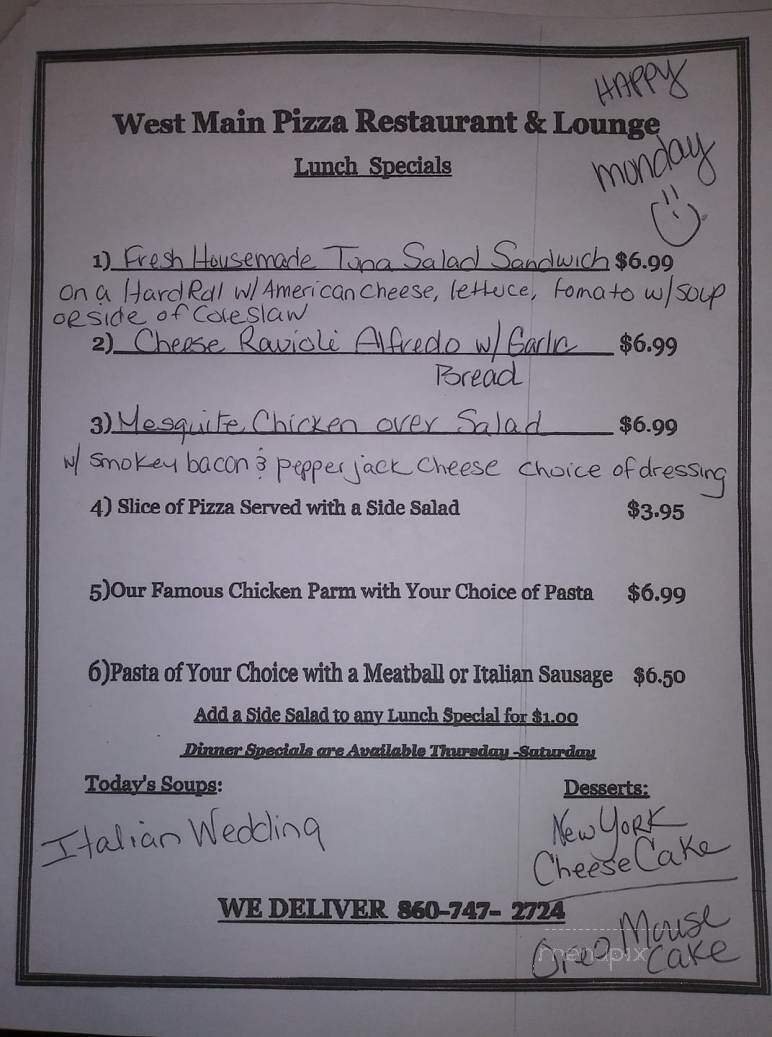 HAPPY
West Main Pizza Restaurant & Lounge
Lunch Specials
monday
1) Fresh Housemade Tuna Salad Sandwich $6.99
on a Hard Roll w/American cheese, lettuce, tomato w/soup
or side of Coleslaw
2) Cheese Ravioli Alfredo w/ Garlic $6.99
Bread
3) Mesquite Chicken over Salad $6.99
w/ smokey bacon & pepper jack cheese choice of dressing
4) Slice of Pizza Served with a Side Salad $3.95
5)Our Famous Chicken Parm with Your Choice of Pasta $6.99
6)Pasta of Your Choice with a Meatball or Italian Sausage $6.50
Add a Side Salad to any Lunch Special for $1.00
Dinner Specials are Available Thursday -Saturday
Today's Soups:
Italian Wedding
Desserts:
New York
Cheese Cake
WE DELIVER 860-747- 2724
Oreo Mouse
Cake
menupix